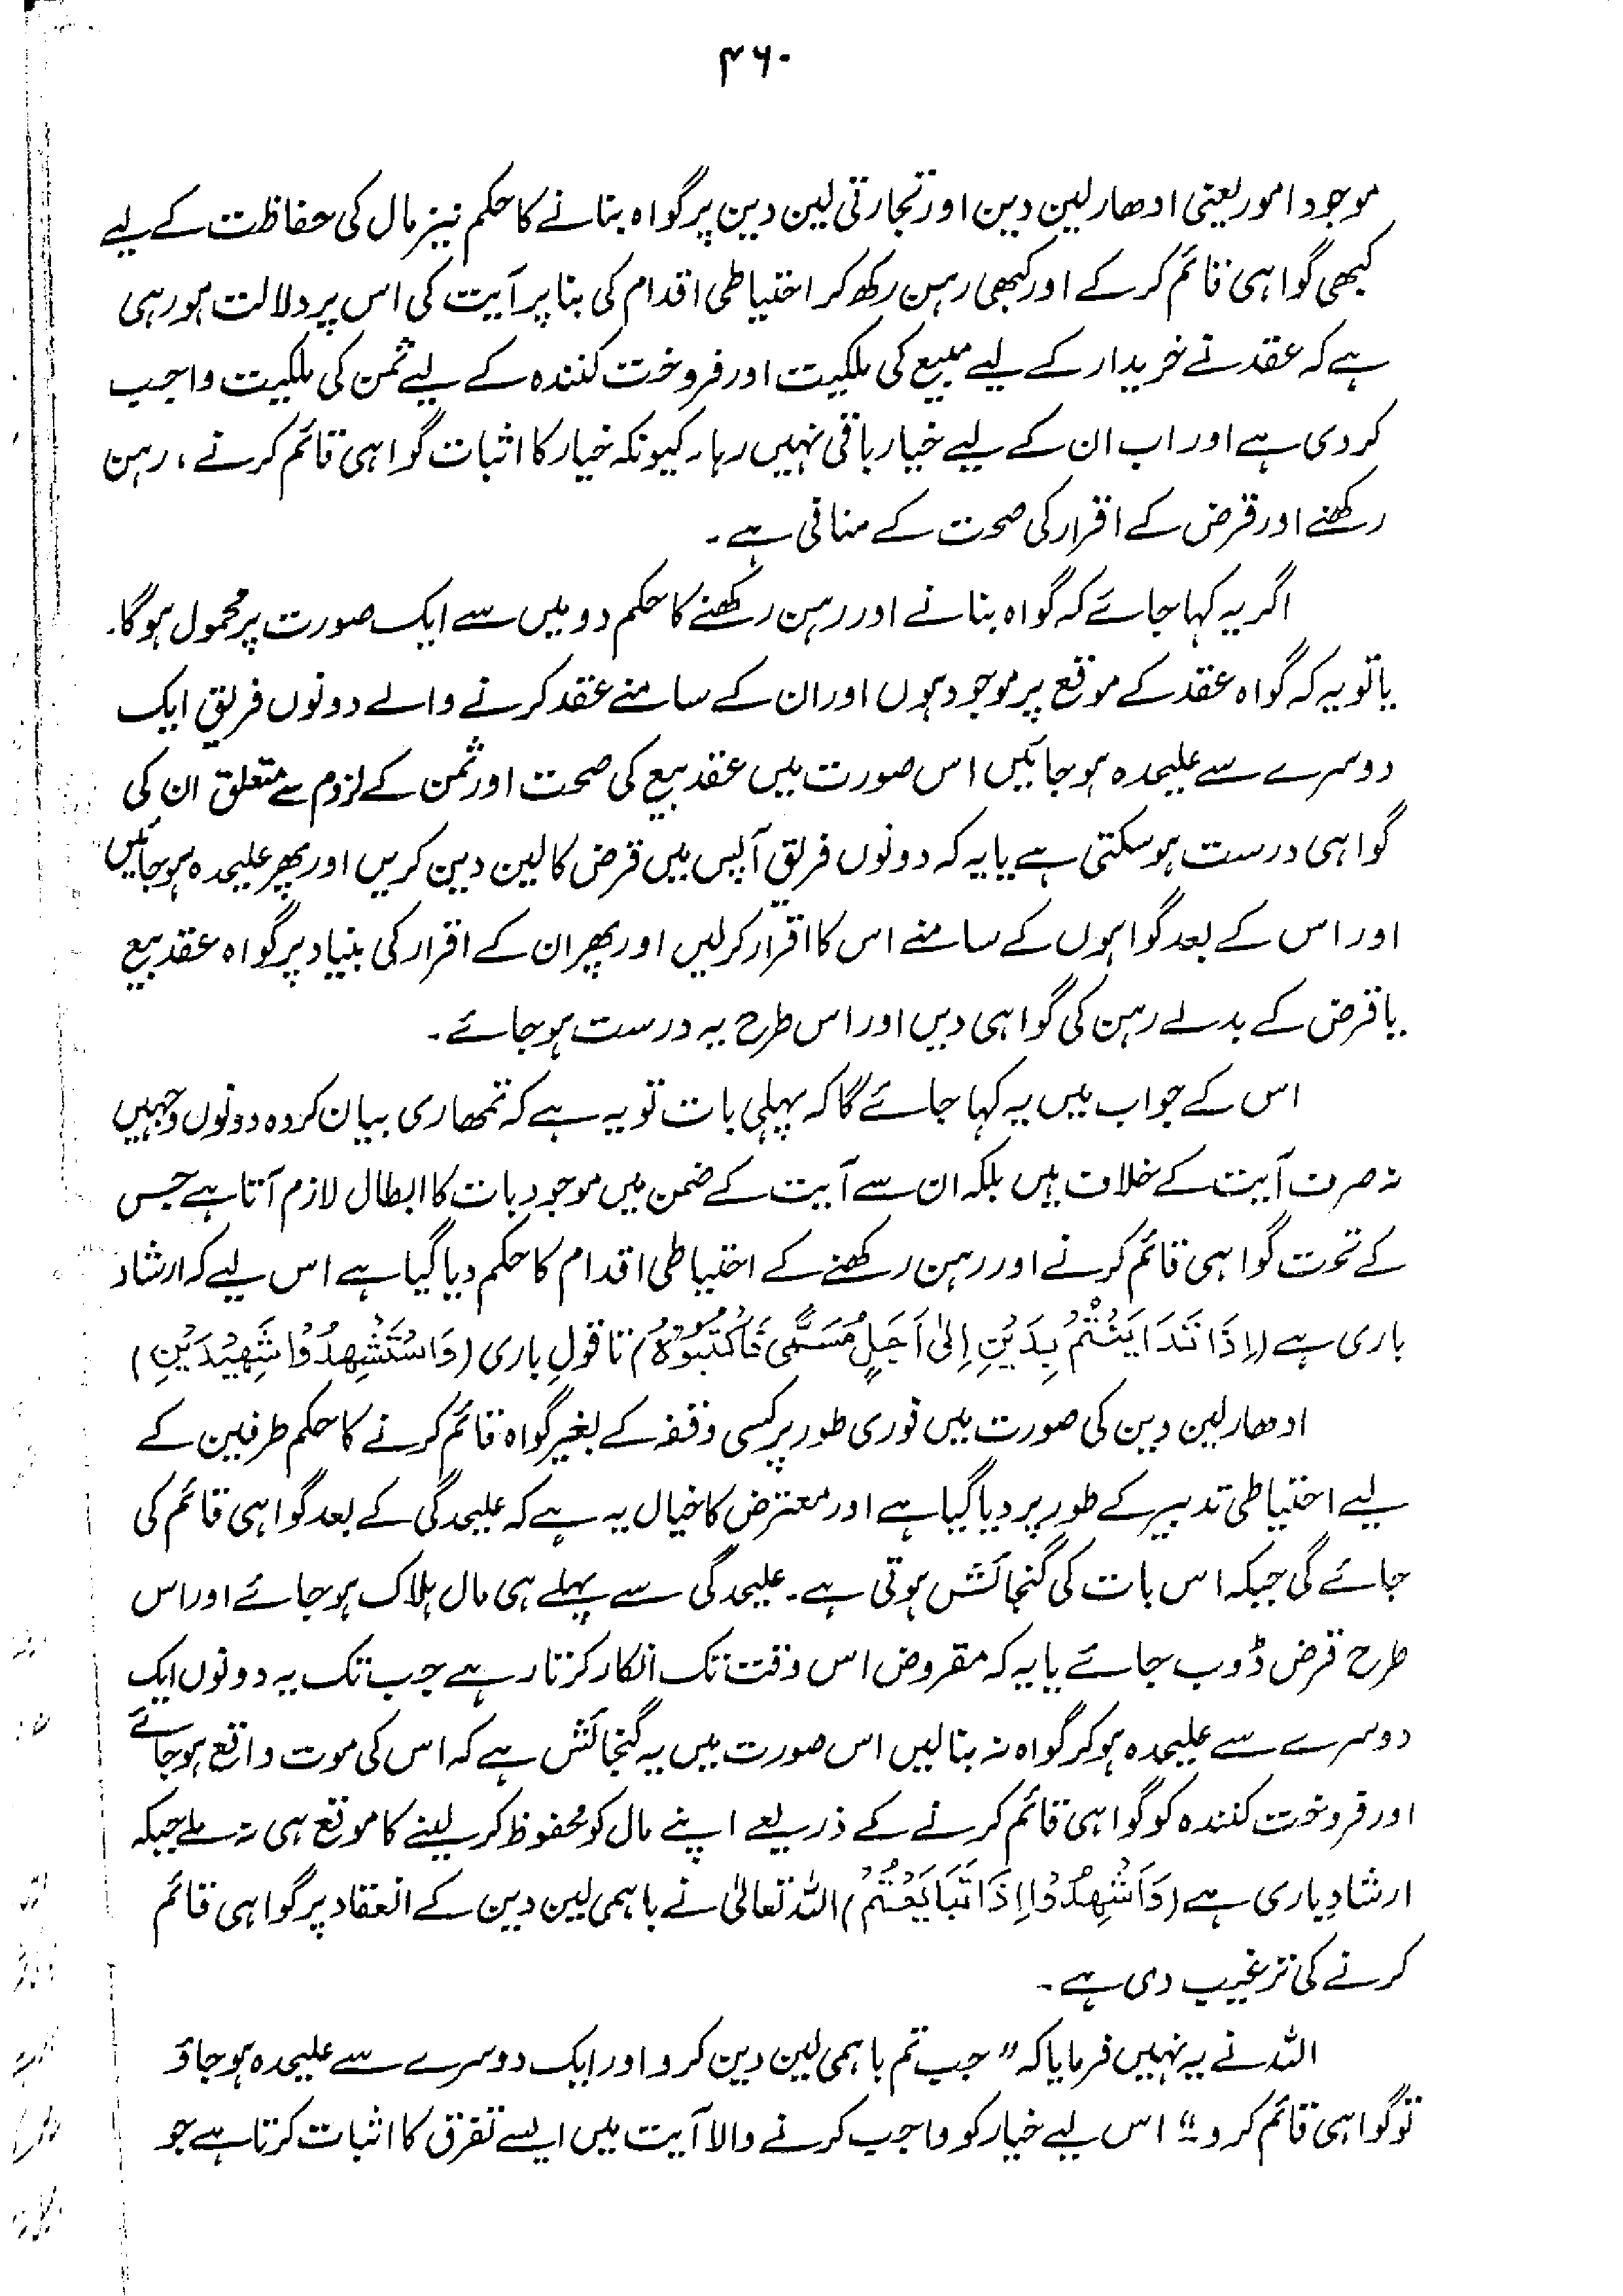 ۴۶۰
موجود امور یعنی ادھار لین دین اور تجارتی لین دین پر گواہ بنانے کا حکم نیز مال کی حفاظت کے لیے
کبھی گواہی قائم کر کے اور کبھی رہن رکھ کر احتیاطی اقدام کی بنا پر آیت کی اس پر دلالت ہو رہی
ہے کہ عقد نے خریدار کے لیے مبیع کی ملکیت اور فروخت کنندہ کے لیے ثمن کی ملکیت واجب
کر دی ہے اور اب ان کے لیے خیار باقی نہیں رہا۔ کیونکہ خیار کا اثبات گواہی قائم کرنے، رہن
رکھنے اور قرض کے اقرار کی صحت کے منافی ہے۔
اگر یہ کہا جائے کہ گواہ بنانے اور رہن رکھنے کا حکم دو میں سے ایک صورت پر محمول ہوگا۔
یا تو یہ کہ گواہ عقد کے موقع پر موجود ہوں اور ان کے سامنے عقد کرنے والے دونوں فریق ایک
دوسرے سے علیحدہ ہو جائیں اس صورت میں عقد بیع کی صحت اور ثمن کے لزوم سے متعلق ان کی
گواہی درست ہو سکتی ہے یا یہ کہ دونوں فریق آپس میں قرض کا لین دین کریں اور پھر علیحدہ ہو جائیں
اور اس کے بعد گواہوں کے سامنے اس کا اقرار کر لیں اور پھر ان کے اقرار کی بنیاد پر گواہ عقد بیع
یا قرض کے بدلے رہن کی گواہی دیں اور اس طرح یہ درست ہو جائے۔
اس کے جواب میں یہ کہا جائے گا کہ پہلی بات تو یہ ہے کہ تمھاری بیان کردہ دونوں وجہیں
نہ صرف آیت کے خلاف ہیں بلکہ ان سے آیت کے ضمن میں موجود بات کا ابطال لازم آتا ہے جس
کے تحت گواہی قائم کرنے اور رہن رکھنے کے احتیاطی اقدام کا حکم دیا گیا ہے اس لیے کہ ارشاد
باری ہے (اِذَا تَدَايَنْتُمْ بِدَيْنٍ اِلٰى اَجَلٍ مُّسَمًّى فَاكْتُبُوْهُ) تا قولِ باری (وَاسْتَشْهِدُوْا شَهِيْدَيْنِ)
ادھار لین دین کی صورت میں فوری طور پر کسی وقفہ کے بغیر گواہ قائم کرنے کا حکم طرفین کے
لیے احتیاطی تدبیر کے طور پر دیا گیا ہے اور معترض کا خیال یہ ہے کہ علیحدگی کے بعد گواہی قائم کی
جائے گی جبکہ اس بات کی گنجائش ہوتی ہے۔ علیحدگی سے پہلے ہی مال ہلاک ہو جائے اور اس
طرح قرض ڈوب جائے یا یہ کہ مقروض اس وقت تک انکار کرتا رہے جب تک یہ دونوں ایک
دوسرے سے علیحدہ ہو کر گواہ نہ بنا لیں اس صورت میں یہ گنجائش ہے کہ اس کی موت واقع ہو جائے
اور فروخت کنندہ کو گواہی قائم کرنے کے ذریعے اپنے مال کو محفوظ کر لینے کا موقع ہی نہ ملے جبکہ
ارشادِ باری ہے (وَاَشْهِدُوْا اِذَا تَبَايَعْتُمْ) اللہ تعالیٰ نے باہمی لین دین کے انعقاد پر گواہی قائم
کرنے کی ترغیب دی ہے۔
اللہ نے یہ نہیں فرمایا کہ "جب تم باہمی لین دین کرو اور ایک دوسرے سے علیحدہ ہو جاؤ
تو گواہی قائم کرو۔" اس لیے خیار کو واجب کرنے والا آیت میں ایسے تفرق کا اثبات کرتا ہے جو